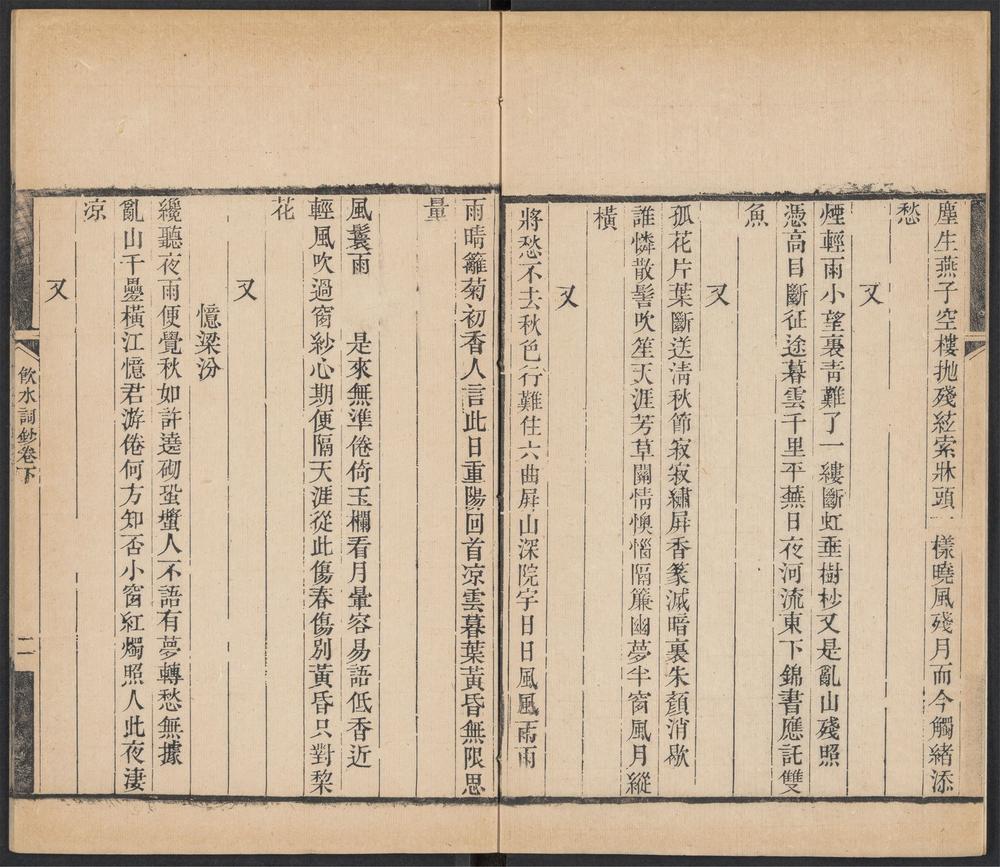 塵生燕子空樓拋殘絃索牀頭一樣曉風殘月而今觸緒添
愁
又
煙輕雨小望裏青難了一縷斷虹垂樹杪又是亂山殘照
憑高目斷征途暮雲千里平蕪日夜河流東下錦書應託雙
魚
又
孤花片葉斷送清秋節寂寂繡屏香篆滅暗裏朱顏消歇
誰憐散髻吹笙天涯芳草關情懊惱隔簾幽夢半窗風月縱
橫
又
將愁不去秋色行難住六曲屏山深院宇日日風風雨雨
雨晴籬菊初香人言此日重陽回首凉雲暮葉黃昏無限思
量
風鬟雨　是來無準倦倚玉欄看月暈容易語低香近
輕風吹過窗紗心期便隔天涯從此傷春傷別黃昏只對棃
花
又
憶梁汾
纔聽夜雨便覺秋如許遶砌蛩螿人不語有夢轉愁無據
亂山千疊橫江憶君游倦何方知否小窗紅燭照人此夜淒
凉
又
飲水詞鈔卷下
二